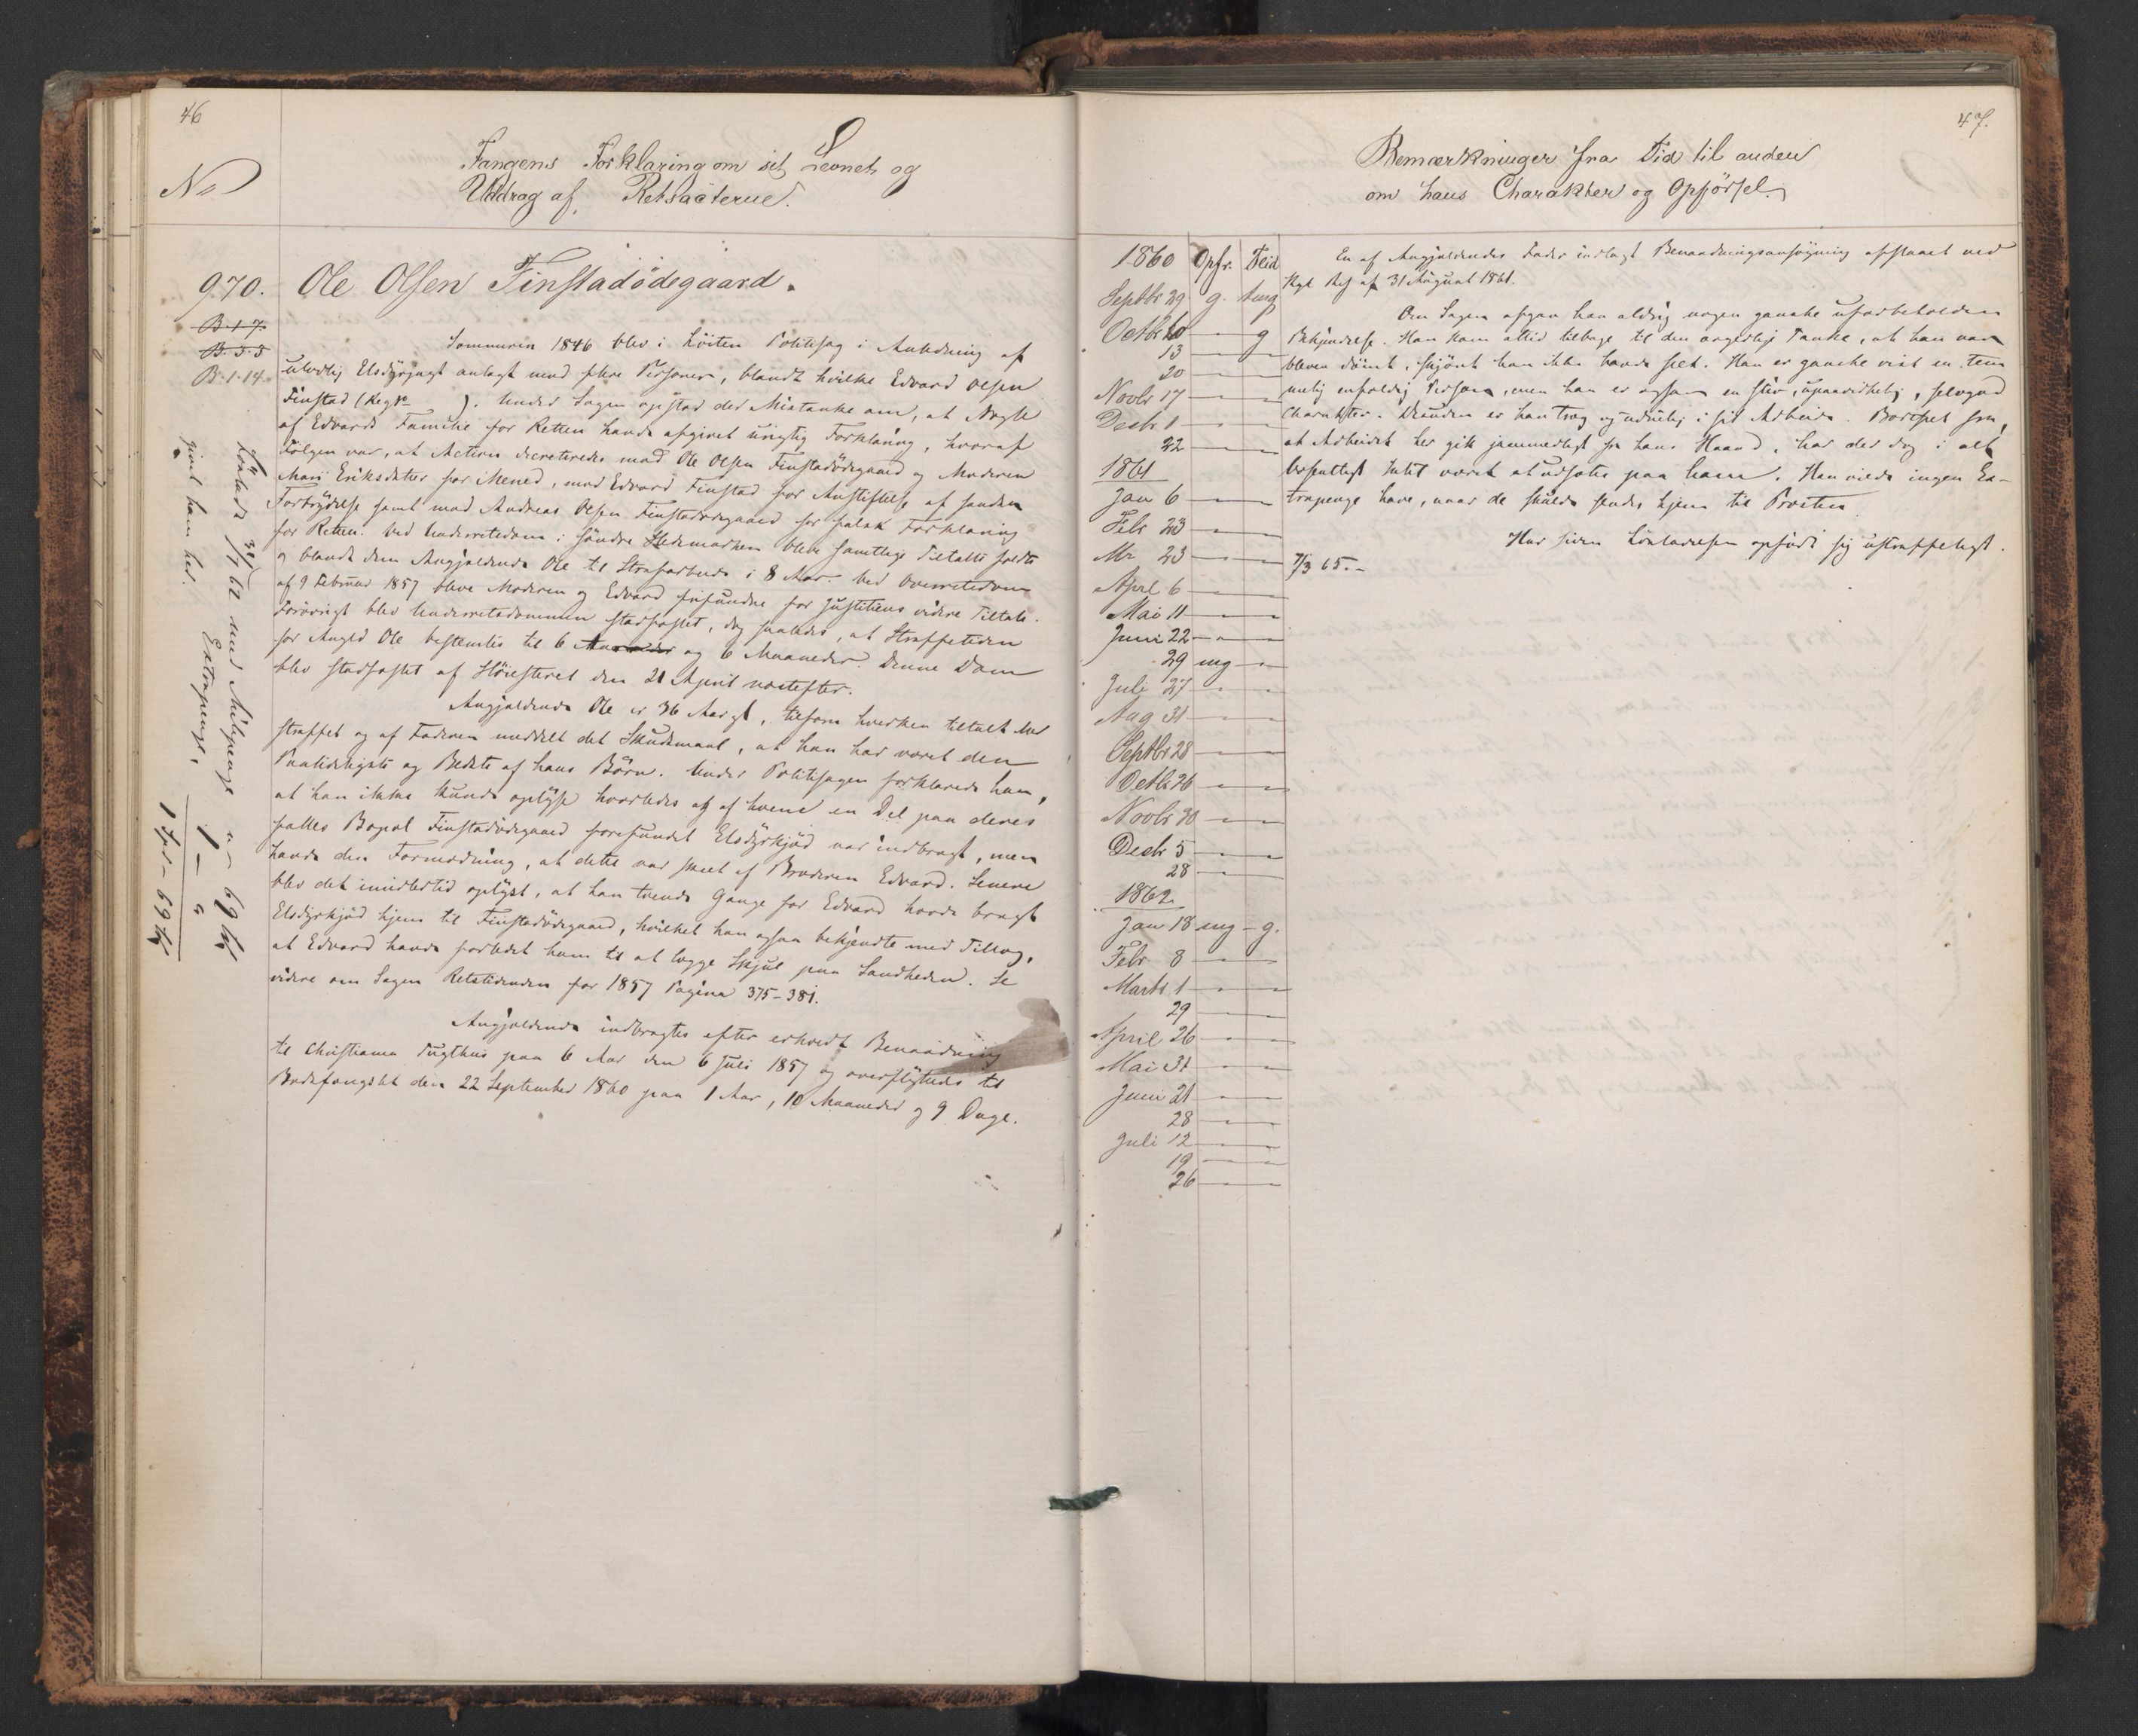 46
No
Fangens Forklaring om sit Levnet og
Uddrag af Retsacterne.
970. Ole Olsen Finstadödegaard.
B. 1-7.
B. 5. 5
B. 1-14.
Sommeren 1846 blev i Löiten Politisag i Anledning af
ulovlig Elsdyrjagt anlagt mod flere Personer, blandt hvilke Edvard Olsen
Finstad (Regr ). Under Sagen opstod der Mistanke om, at Nogle
af Edvards Familie for Retten havde afgivet urigtig Forklaring, hvoraf
Fölgen var, at Action decreteredes mod Ole Olsen Finstadödegaard og Moderen
Mari Eriksdatter for Mened, mod Edvard Finstad for Anstiftelse af saadan
Forbrydelse samt mod Andreas Olsen Finstadödegaard for falsk Forklaring
for Retten. Ved Underretsdom i söndre Hedemarken bleve samtlige Tiltalte fældte
og blandt dem Angjældende Ole til Strafarbeide i 8 Aar. Ved Overretsdom
af 9 Februar 1857 bleve Moderen og Edvard frifundne for Justitiens videre Tiltale.
Forövrigt blev Underretsdommen stadfæstet, dog saaledes, at Straffetiden
for Angjld Ole bestemtes til 6 og 6 Maaneder. Denne Dom
blev stadfæstet af Höiesteret den 21 April næstefter.
Angjældende Ole er 36 Aar gl, tilforn hverken tiltalt eller
straffet og af Faderen meddelt det Skudsmaal, at han har været den
Paalideligste og Bedste af hans Börn. Under Politisagen forklarede han,
at han ikke kunde oplyse hvorledes og af hvem en Del paa deres
fælles Bopæl Finstadödegaard forefundet Elsdyrkjöd var indbragt, men
havde den Formodning, at dette var skeet af Broderen Edvard. Senere
blev det imidlertid oplyst, at han tvende Gange for Edvard havde bragt
Elsdyrkjöd hjem til Finstadödegaard, hvilket han ogsaa bekjendte med Tillæg,
at Edvard havde forledet ham til at lægge Skjul paa Sandheden. Se
videre om Sagen Retstidenden for 1857 Pagina 375-381.
Angjældende indbragtes efter erholdt Benaadning
til Christiania Tugthus paa 6 Aar den 6 Juli 1857 og overflyttedes til
Bodsfængslet den 22 September 1860 paa 1 Aar, 10 Maaneder og 9 Dage.
Löslodt 31/7 62 med Arbpenge " - 69 sk
Extrapenge, 1 - "
givet ham her. 1 Spd - 69 sk
47.
Bemærkninger fra Tid til anden
om hans Charakter og Opförsel.
1860 Opfr. Flid
Septbr 29 g. tmg
Octbr 10 - g
13 - -
20 - -
Novbr 17 - -
Decbr 1 - -
22 - -
1861
Jan 6 - -
Febr 23 - -
Mr 23 - -
April 6 - -
Mai 11 - -
Juni 22 - -
29 mg -
Juli 27 - -
Aug 31 - -
Septbr 28 - -
Octbr 26 - -
Novbr 30 - -
Decbr 5 - -
28 - -
1862
Jan 18 mg - g.
Febr 8 - -
Marts 1 - -
29 - -
April 26 - -
Mai 31 - -
Juni 21 - -
28 - -
Juli 12 - -
19 - -
26 - -
En af Angjældendes Fader indlagt Benaadningsansögning afslaaet ved
Kgl Res af 31 August 1861.
Om Sagen afgav han aldrig nogen ganske uforbeholden
Bekjendelse. Han kom altid tilbage til den Tanke, at han var
bleven dömt, skjönt han ikke havde seet. Han er ganske vist en tem
melig enfoldig Person, men han er ogsaa en stiv, upaavirkelig, selvgod
Charakter. Desuden er han træg og i sit Arbeide. Bortseet fra,
at Arbeidet her gik jammerligt fra hans Haand, har der dog i alt
Væsentligt Intet været at udsætte paa ham. Han vilde ingen Ex-
trapenge have, naar de skulde sendes hjem til Præsten.
Har siden Lösladelsen opfört sig ustraffeligt.
7/3 65.-